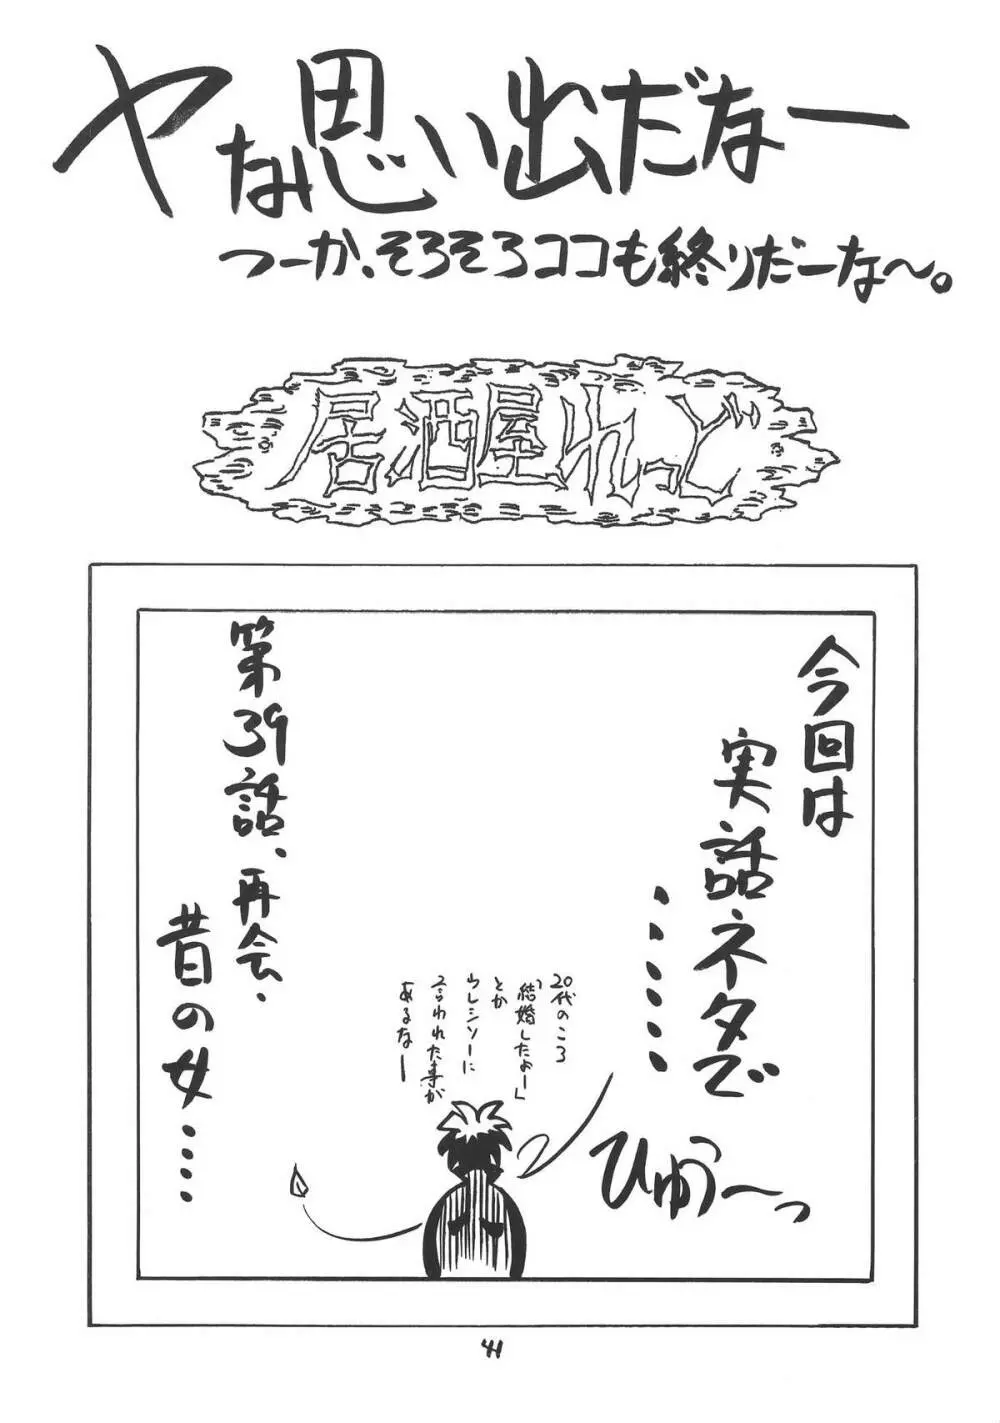 ヤな思い出だなー
つーか、そろそろココも終りだーな〜。
居酒屋れっど
今回は
実話ネタで
・・・・・・
ひゅう〜っ
20代のころ
「結婚したよー」
とか
ウレシソーに
言われた事が
あるなー
第39話、再会、
昔の女・・・・
41